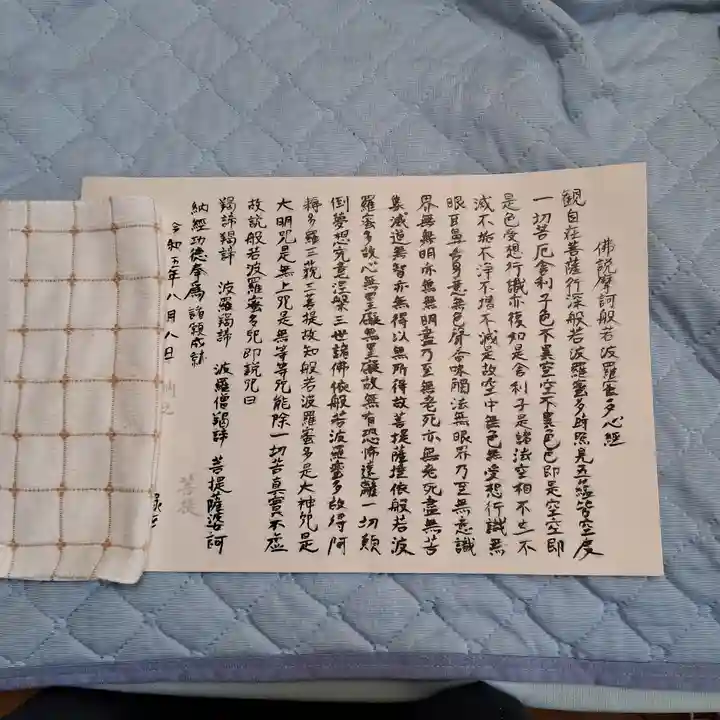 佛説摩訶般若波羅蜜多心経
観自在菩薩行深般若波羅蜜多時照見五蘊皆空度
一切苦厄舎利子色不異空空不異色色即是空空即
是色受想行識亦復如是舎利子是諸法空相不生不
滅不垢不浄不増不減是故空中無色無受想行識無
眼耳鼻舌身意無色声香味觸法無眼界乃至無意識
界無無明亦無無明盡乃至無老死亦無老死盡無苦
集滅道無智亦無得以無所得故菩提薩埵依般若波
羅蜜多故心無罣礙無罣礙故無有恐怖遠離一切顛
倒夢想究竟涅槃三世諸佛依般若波羅蜜多故得阿
耨多羅三藐三菩提故知般若波羅蜜多是大神咒是
大明咒是無上咒是無等等咒能除一切苦真實不虚
故説般若波羅蜜多咒即説咒曰
羯諦羯諦　波羅羯諦　波羅僧羯諦　菩提薩婆訶
納經功徳奉爲諸願成就
令和五年八月八日